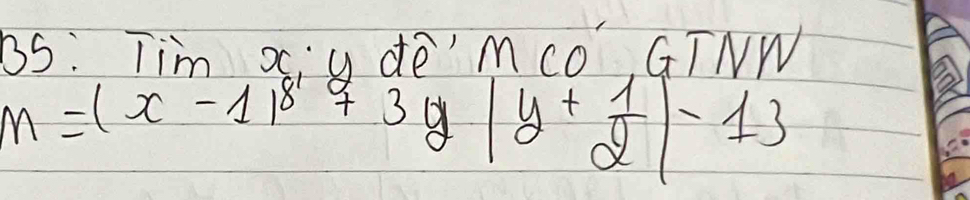 B5: Tìm x; y để M có GTNN
M = (x - 1)⁸ + 3y |y + 1/2| - 13